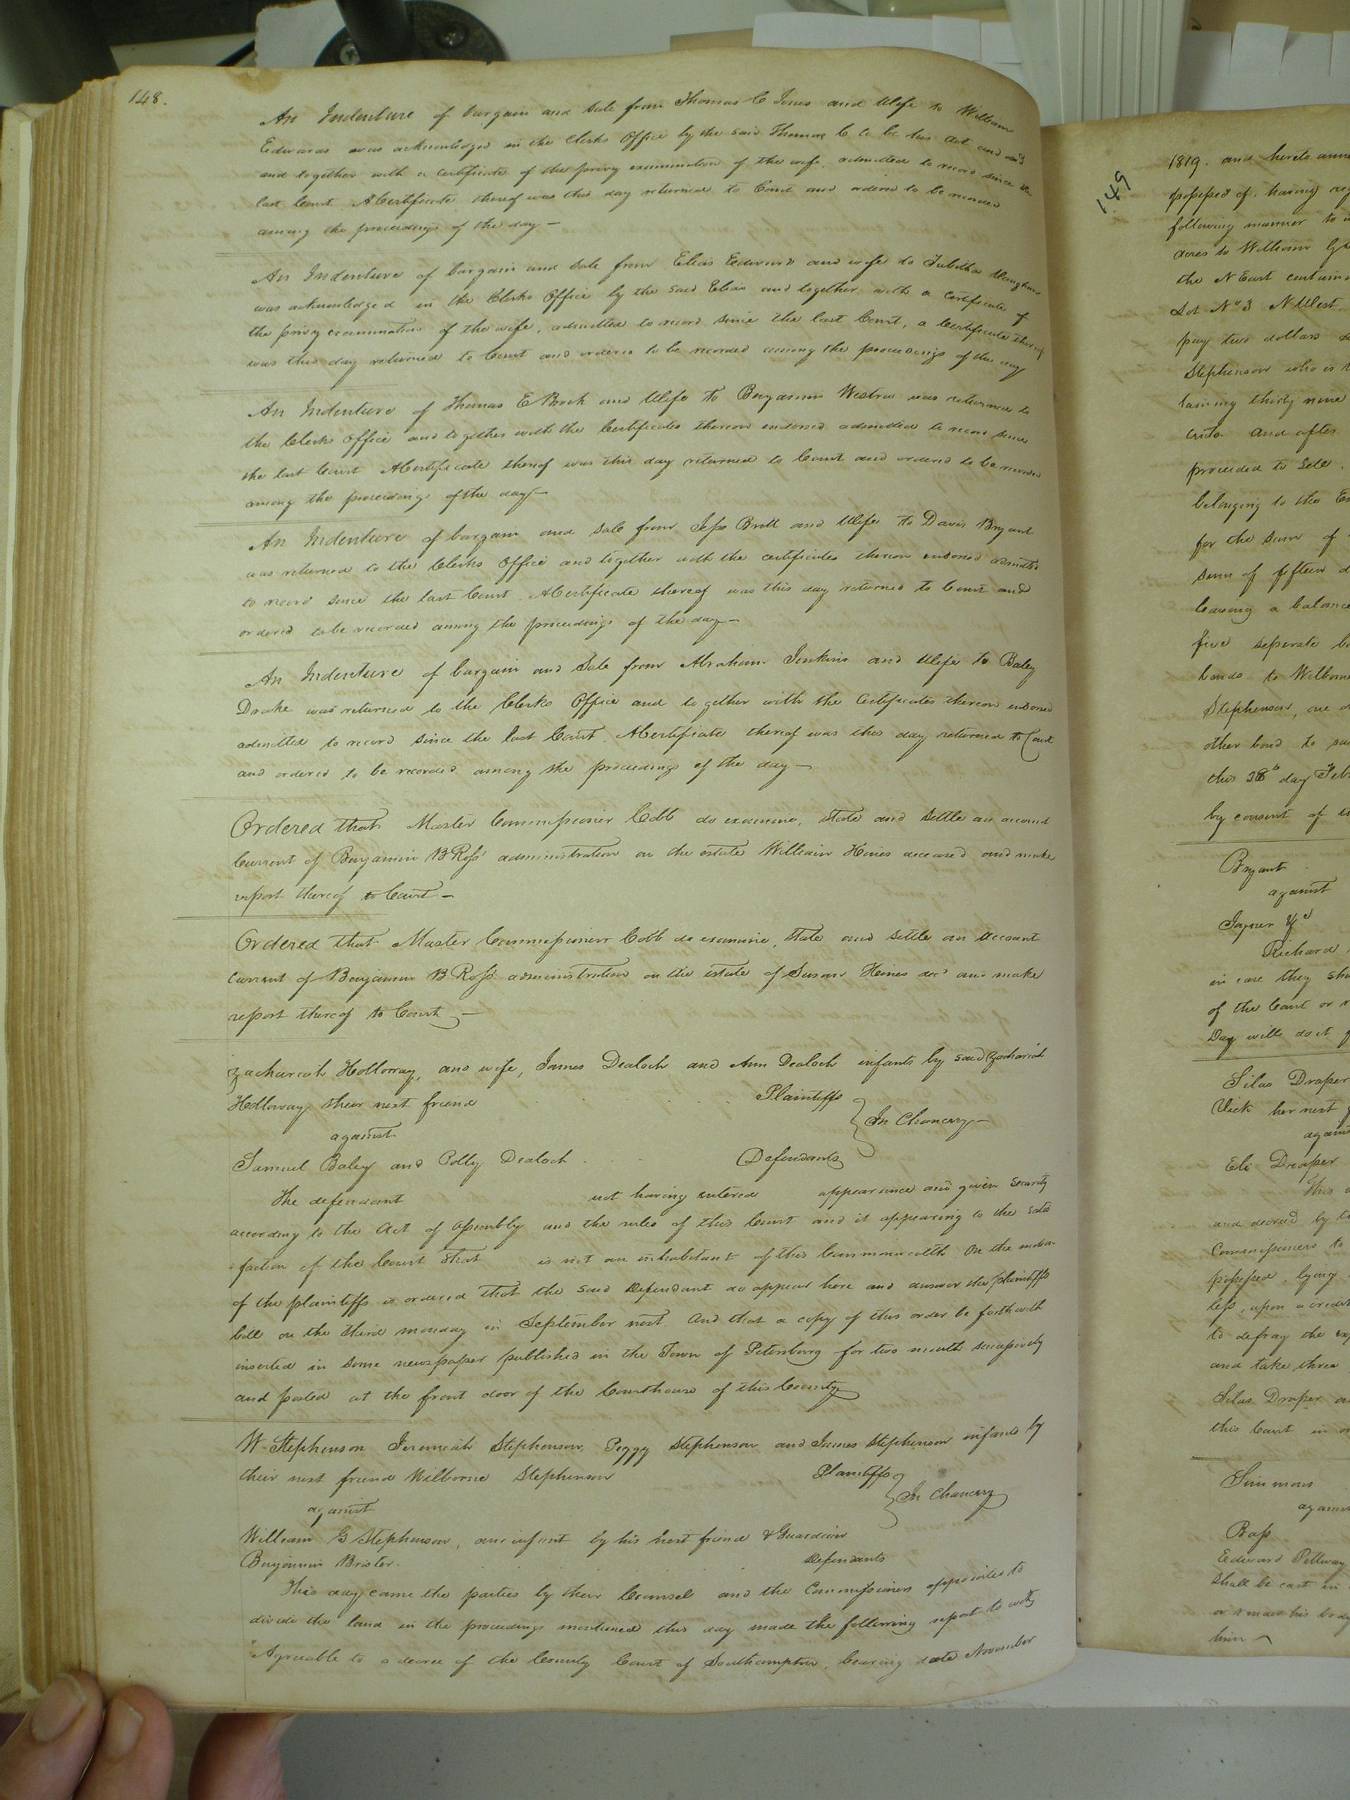 148.
An Indenture of bargain and Sale from Thomas C Jones and Wife to William
Edwards was acknowledged in the Clerks Office by the said Thomas C to be his act and
and together with a certificate of the privy examination of the wife, admitted to record since the
last Court. A Certificate thereof was this day returned to Court and ordered to be recorded
among the proceedings of the day —
An Indenture of bargain and Sale from Elias Edwards and wife to Tabitha
was acknowledged in the Clerks Office by the said Elias and together with a certificate of
the privy examination of the wife, admitted to record since the last Court, a Certificate thereof
was this day returned to Court and ordered to be recorded among the proceedings of the day
An Indenture of Thomas E Brock and Wife to Benjamin Westra was returned to
the Clerks Office and together with the Certificates thereon endorsed admitted to record since
the last Court A Certificate thereof was this day returned to Court and ordered to be recorded
among the proceedings of the day —
An Indenture of bargain and Sale from Jesse Britt and Wife to Davis Bryant
was returned to the Clerks Office and together with the certificates thereon endorsed admitted
to record since the last Court. A Certificate thereof was this day returned to Court and
ordered to be recorded among the proceedings of the day —
An Indenture of bargain and Sale from Abraham Jenkins and Wife to Baley
Drake was returned to the Clerks Office and together with the Certificates thereon endorsed
admitted to record since the last Court. A Certificate thereof was this day returned to Court
and ordered to be recorded among the proceedings of the day —
Ordered that Master Commissioner Cobb do examine, state and settle an account
Current of Benjamin B Ross' administration on the estate William Hines deceased and make
report thereof to Court —
Ordered that Master Commissioner Cobb do examine, State and Settle an account
Current of Benjamin B Ross' administration on the estate of Susan Hines decd and make
report thereof to Court —
Zachariah Holloway, and wife, James Dealoch and Ann Dealoch infants by said Zachariah
Holloway their next friend Plaintiffs
against In Chancery —
Samuel Baley and Polly Dealoch Defendants
The defendant not having entered appearance and given Security
according to the Act of Assembly and the rules of this Court and it appearing to the satis
faction of the Court that is not an inhabitant of this Commonwealth On the motion
of the plaintiffs is ordered that the said Defendant do appear here and answer the plaintiffs
bill on the third monday in September next And that a copy of this order be forthwith
inserted in some newspaper published in the Town of Petersburg for two months successively
and posted at the front door of the Courthouse of this County
W Stephenson Jeremiah Stephenson, Peggy Stephenson and James Stephenson infants by
their next friend Wilborne Stephenson Plaintiffs
against In Chancery
William G Stephenson, an infant by his next friend & Guardian
Benjamin Brister. Defendants
This day came the parties by their Counsel and the Commissioners appointed to
divide the land in the proceedings mentioned this day made the following report to wit,
"Agreeable to a decree of the County Court of Southampton, bearing date November
149
1819. and hereto
possessed of. having
following manner to
acres to William
the N East
Lot No 3 N West
pay two dollars
Stephenson who is
thirty nine
and after
proceeded to Sell
belonging to the
for the Sum of
sum of fifteen
leaving a balance
five seperate
bonds to
Stephenson, one
other bond to
this 28th day
by consent of
Bryant
against
Joyner
Richard
in case they
of the Court or
Day will do it
Silas Draper
Vick her next
against
Eli Draper
This
and decreed by
Commissioners to
possessed, lying
less, upon a credit
to defray the
and take three
Silas Draper
this Court in
Simmons
against
Bass
Edward Pettway
Shall be cast in
or render his body
him